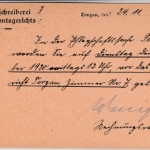 schreiberei 3
mtsgerichts
Torgau, den 24.11
In der Pflegschaftssache
werden Sie auf Dienstag den
ber 1930 mittags 12 Uhr, vor das
richt Torgau Zimmer Nr. 7, gel
Rechnungsrev